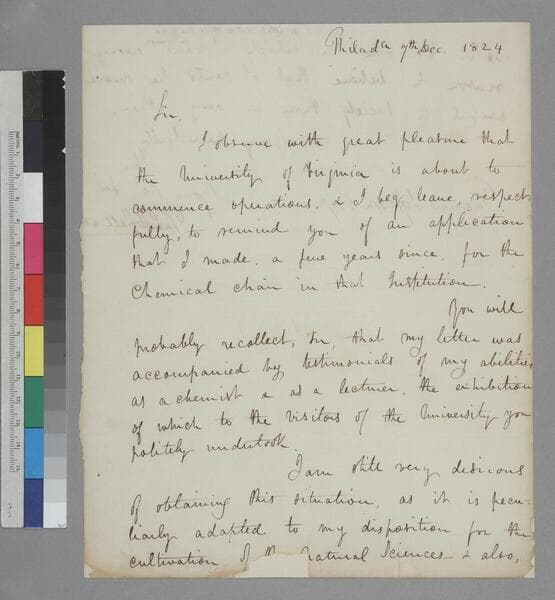 Philada 7th Dec. 1824
Sir,
I observe with great pleasure that
the University of Virginia is about to
commence operations, & I beg leave, respect
fully, to remind you of an application
that I made, a few years since, for the
Chemical chair in that Institution.
You will
probably recollect, Sir, that my letter was
accompanied by testimonials of my abilities
as a chemist & as a lecturer, the exhibition
of which to the visitors of the University you
politely undertook.
I am still very desirous
of obtaining this situation, as it is pecu-
liarly adapted to my disposition for the
cultivation of natural Sciences & also,